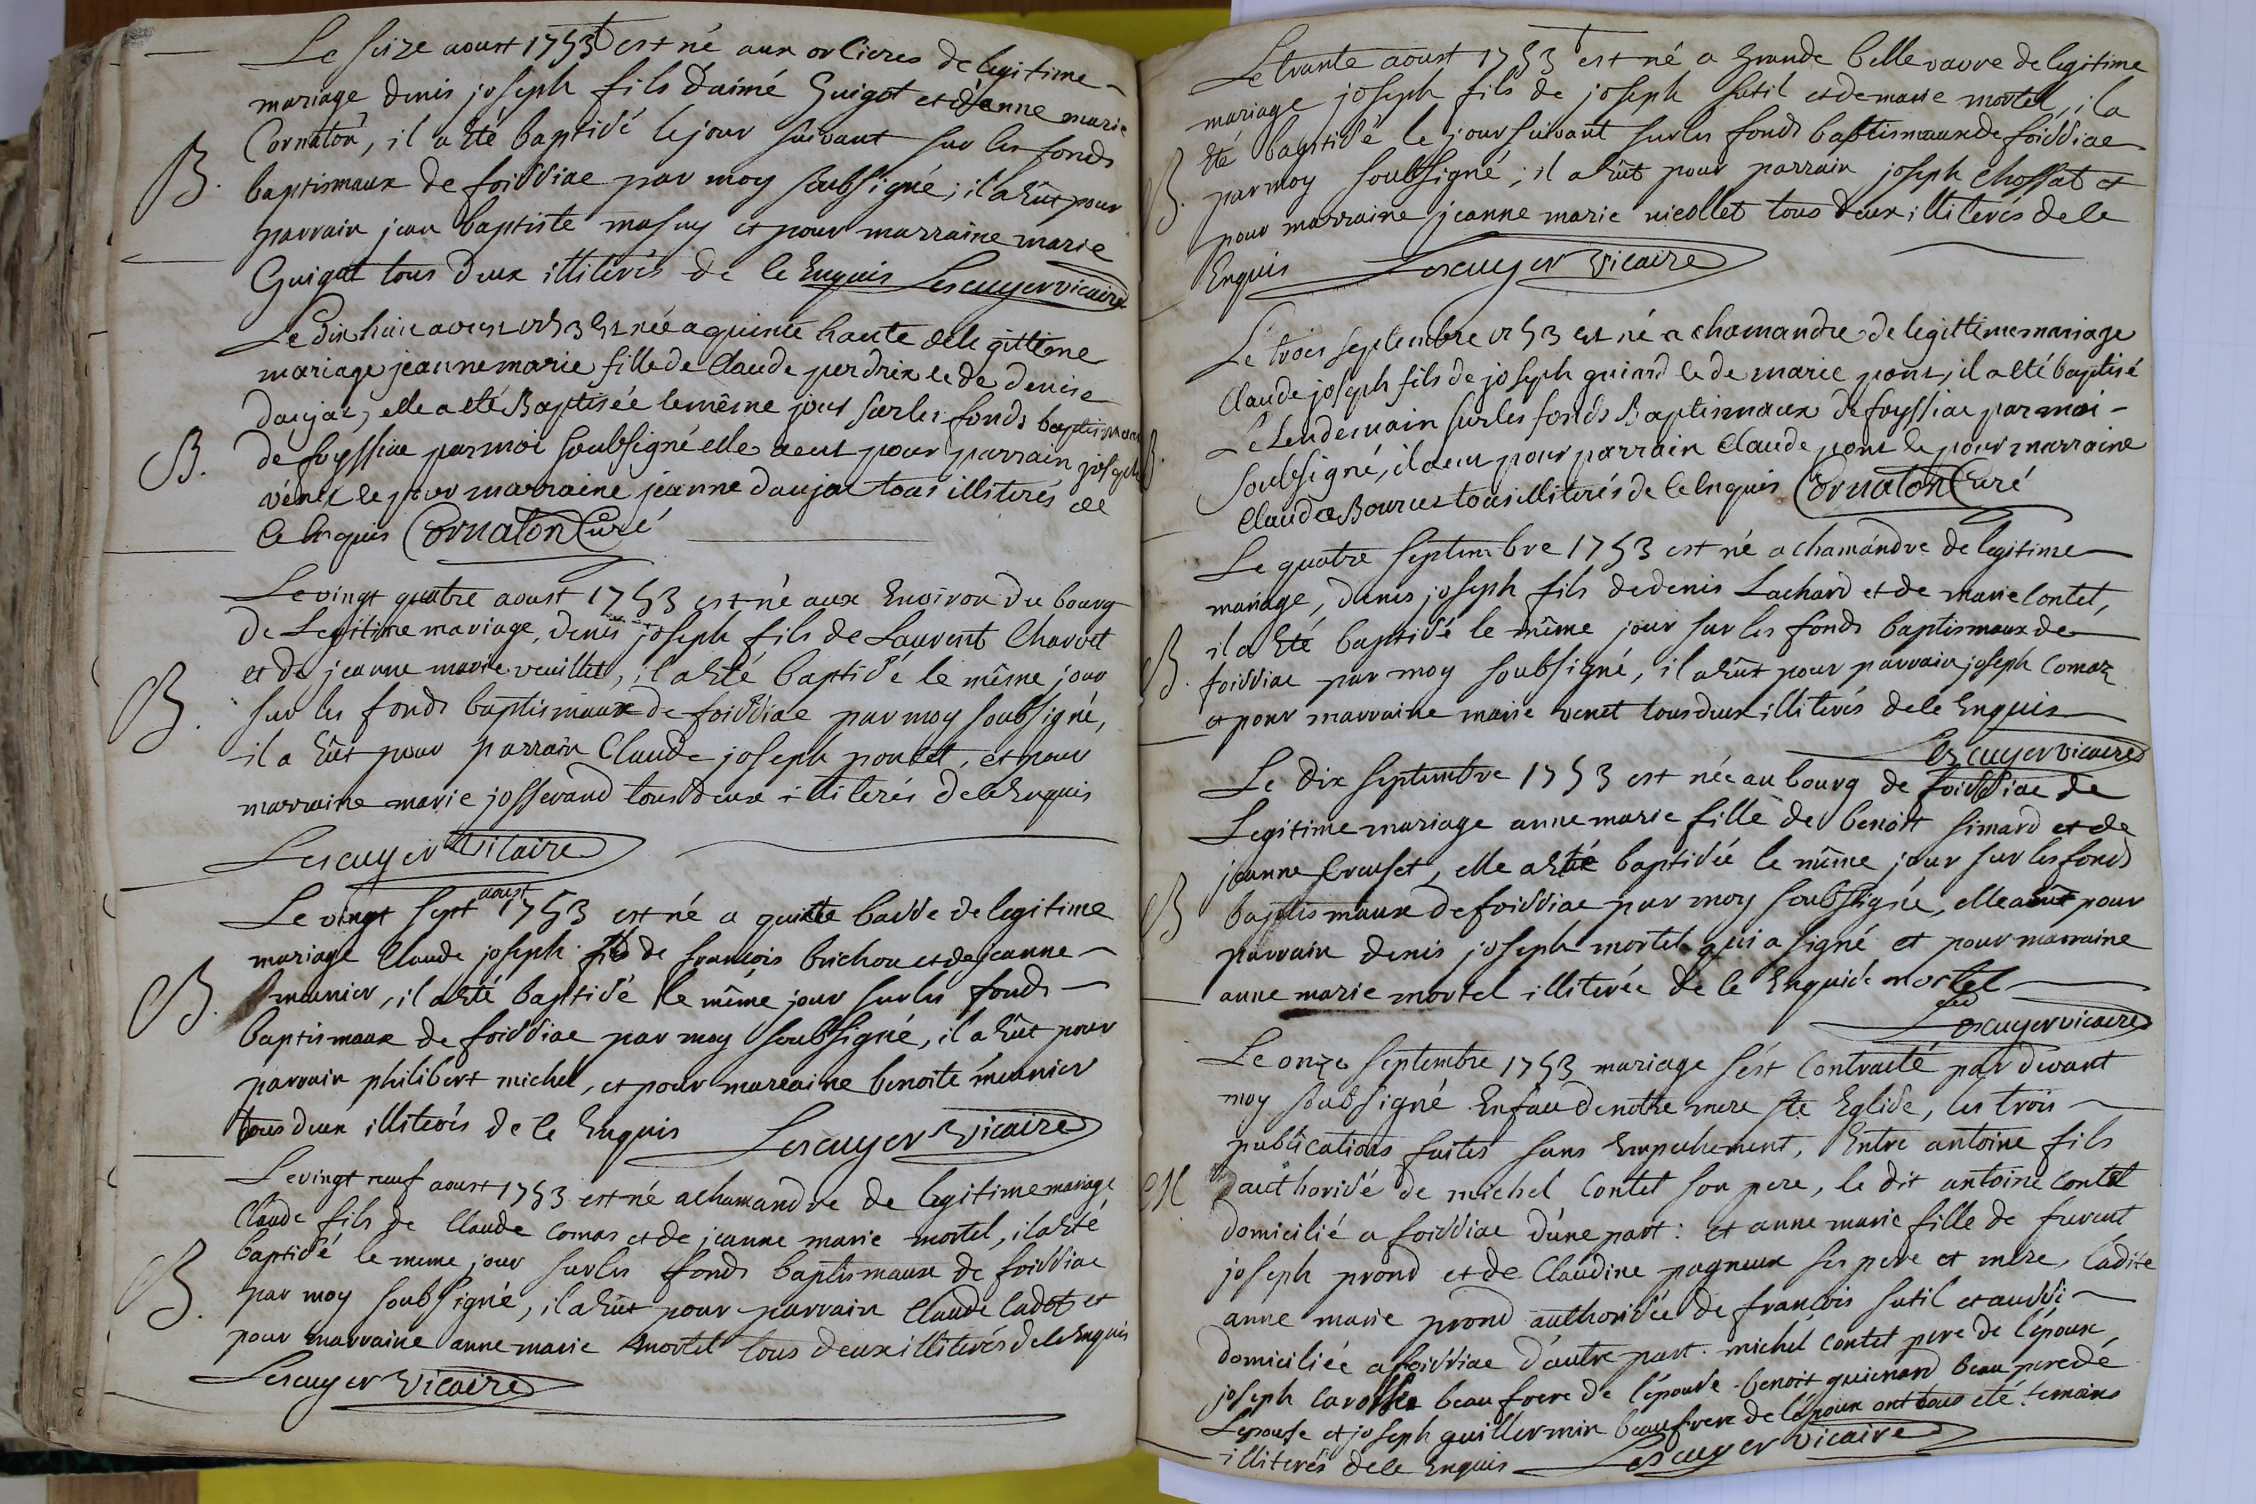 Le seize aoust 1753 est né aux orlieres de legitime
mariage denis joseph fils d'aimé Guigot et d'anne marie
Cornaton, il a été baptisé le jour suivant sur les fonds
B. baptismaux de foissiae par moy soubsigné; il a hût pour
parrain jean baptiste masuy et pour marraine marie
Guigot tous deux illiterés de le Enquis Lescuyer vicaire
Le dix huit aoust 1753 est née a quinte haute de legittime
mariage jeanne marie fille de Claude perdrix et de denise
daujat, elle a eté Baptisée le même jour sur les fonds baptismaux
B. de foyssiae par moi soubsigné elle a eut pour parrain joseph
venet et pour marraine jeanne daujat tous illiterés de
ce Enquis Cornaton Curé
Le vingt quatre aoust 1753 est né aux Environ du bourg
de Legitime mariage, denis joseph fils de Laurent Charvet
et de jeanne marie veuillet, il a été baptisé le même jour
B. sur les fonds baptismaux de foissiae par moy soubsigné,
il a hût pour parrain Claude joseph pontet, et pour
marraine marie josserand tous deux illiterés de le Enquis
Lescuyer Vicaire
aoust
Le vingt sept 1753 est né a quitte basse de legitime
mariage Claude joseph fils de francois brichon et de jeanne
B. meunier, il a été baptisé le même jour sur les fonds
baptismaux de foissiae par moy soubsigné, il a hût pour
parrain philibert michel, et pour marraine benoite meunier
tous deux illiterés de le Enquis Lescuyer Vicaire
Le vingt neuf aoust 1753 est né a chamandre de legitime mariage
Claude fils de Claude Comas et de jeanne marie mortel, il a été
baptisé le meme jour sur les fonds baptismaux de foissiae
B. par moy soubsigné, il a hût pour parrain Claude Cadot et
pour marraine anne marie mortel tous deux illiterés de le Enquis
Lescuyer Vicaire
Le trante aoust 1753 est né a Grande bellevavre de legitime
mariage joseph fils de joseph sutil et de marie mortel, il a
été baptisé le jour suivant sur les fonds baptismaux de foissiae
B. par moy soubsigné; il a hût pour parrain joseph Chossat et
pour marraine jeanne marie nicollet tous deux illiterés de le
Enquis Lescuyer Vicaire
Le trois septembre 1753 est né a chamandre de legittime mariage
Claude joseph fils de joseph guinrd et de marie pont, il a eté baptisé
B. Le Lendemain sur les fonds Baptismaux de foyssiae par moi
soubsigné, il a eut pour parrain Claude pont et pour marraine
Claudee Bourcet tous illiterés de le Enquis Cornaton Curé
Le quatre septembre 1753 est né a chamandre de legitime
mariage, denis joseph fils de denis Lachard et de marie Contet,
il a été baptisé le même jour sur les fonds baptismaux de
B. foissiae par moy soubsigné, il a hût pour parrain joseph Comaz
et pour marraine marie venet tous deux illiterés de le Enquis
Lescuyer vicaire
Le dix septembre 1753 est née au bourg de foissiae de
Legitime mariage anne marie fille de benoit simard et de
jeanne Creuset, elle a été baptisée le même jour sur les fonds
B baptismaux de foissiae par moy soubsigné, elle a hût pour
parrain denis joseph mortel qui a signé et pour marraine
anne marie mortel illiterée de le Enquise mortel
Lescuyer vicaire
Le onze septembre 1753 mariage s'est Contracté par devant
moy soubsigné En face de nottre mere ste Eglise, les trois
publications faites sans Empechement, Entre antoine fils
M authorisé de michel Contet son pere, le dit antoine Contet
domicilié a foissiae d'une part: et anne marie fille de furent
joseph prond et de Claudine pagneux ses pere et mere, ladite
anne marie prond authorisée de francois sutil et aussi
domiciliée a foissiae d'autre part. michel Contet pere de l'epoux
joseph Carosse beau frere de l'epouse benoit guienard beau pere de
Lepouse et joseph guillermin beaufrere de l'epoux ont tous eté temoins
illiterés de le Enquis Lescuyer Vicaire